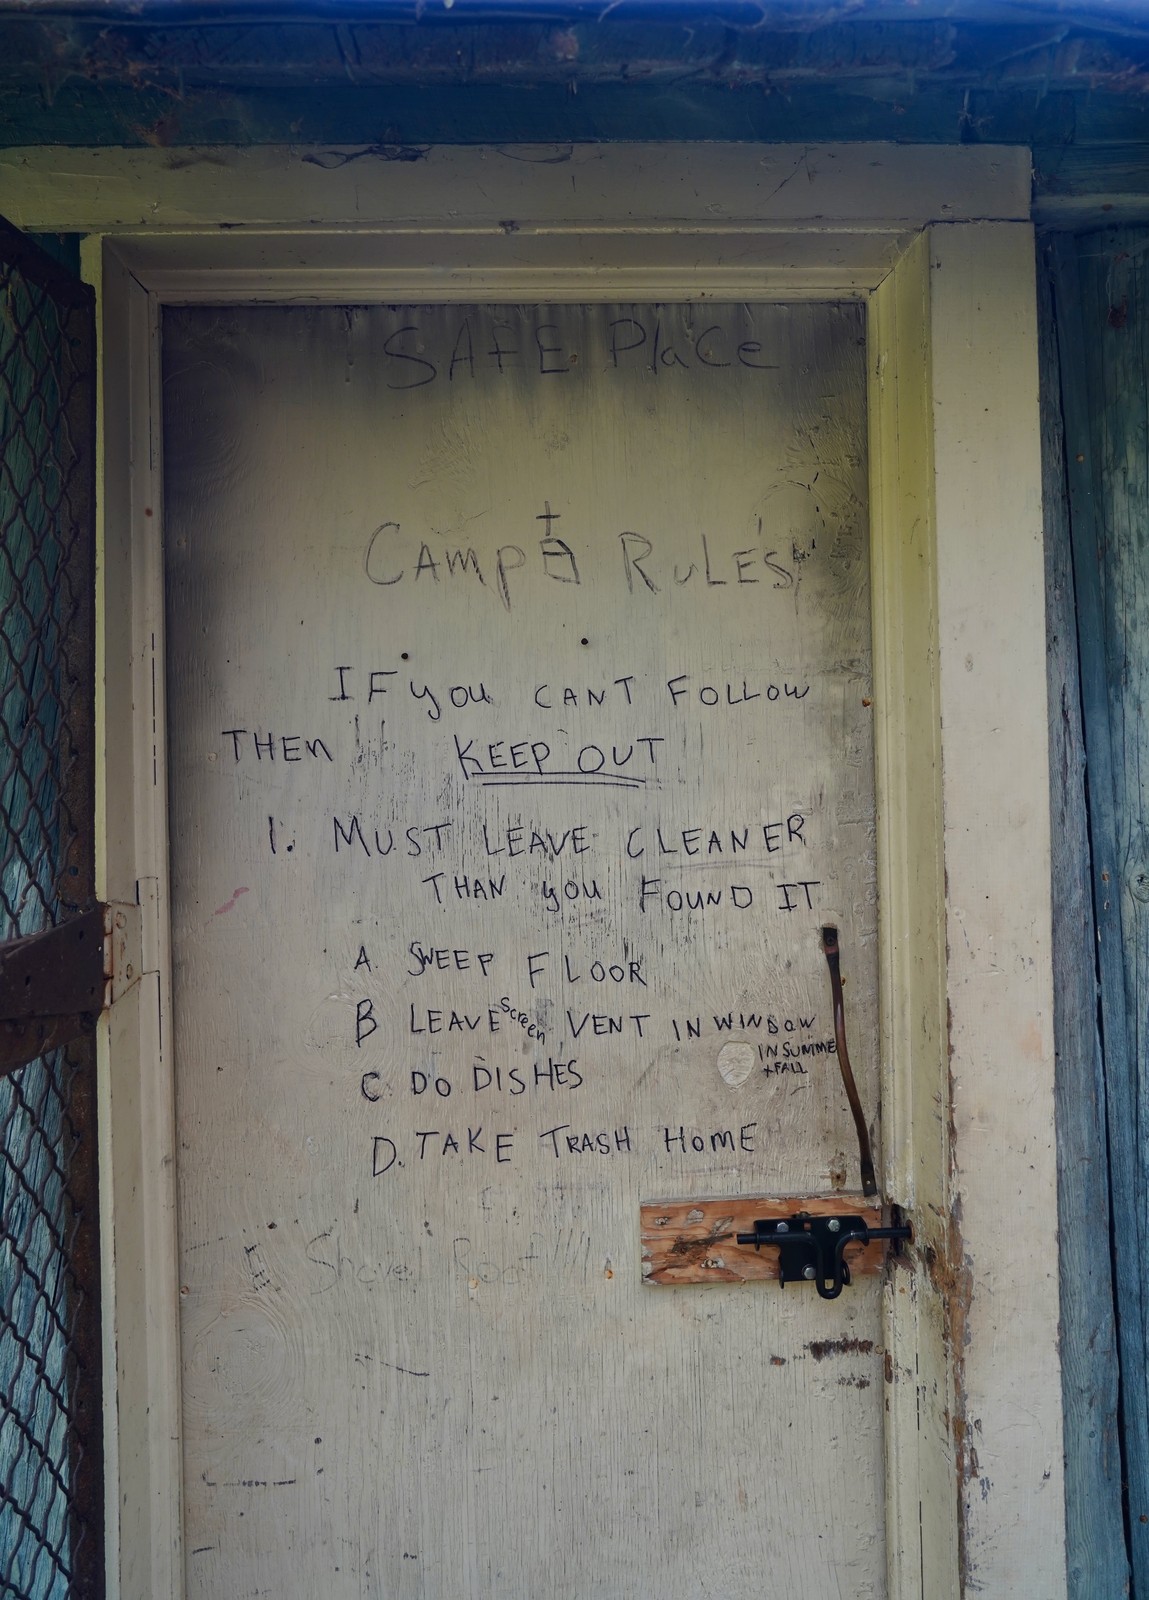 SAFE PlaCe
CAmp RuLES
IF you CANT FOLLOW
THEN KEEP OUT
1. MUST LEAVE CLEANER
THAN you FOUND IT
A. SWEEP FLOOR
B LEAVE screen VENT IN WINDOW
IN SUMME
+FALL
C. DO DISHES
D. TAKE TRASH HomE
E Shovel Roof !!!!